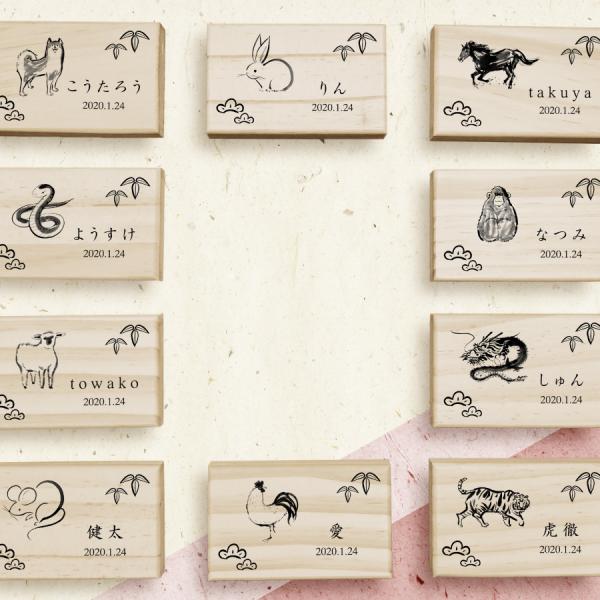 こうたろう
2020.1.24
りん
2020.1.24
takuya
2020.1.24
ようすけ
2020.1.24
なつみ
2020.1.24
towako
2020.1.24
しゅん
2020.1.24
健太
2020.1.24
愛
2020.1.24
虎徹
2020.1.24